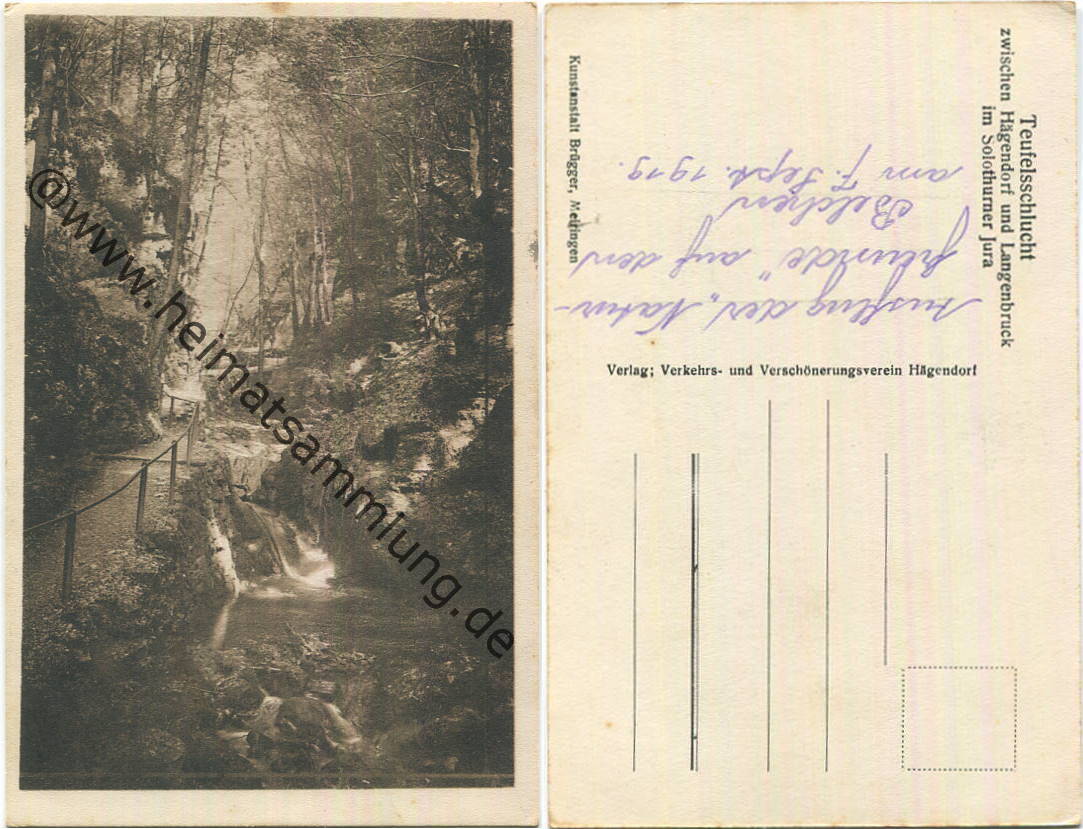 @www.heimatsammlung.de
Teufelsschlucht
zwischen Hägendorf und Langenbruck
im Solothurner Jura
Kunstanstalt Brügger, Meiringen
Verlag; Verkehrs- und Verschönerungsverein Hägendorf
Ausflug der „Natur-
freunde" auf den
Belchen
am 7. Sept. 1919.